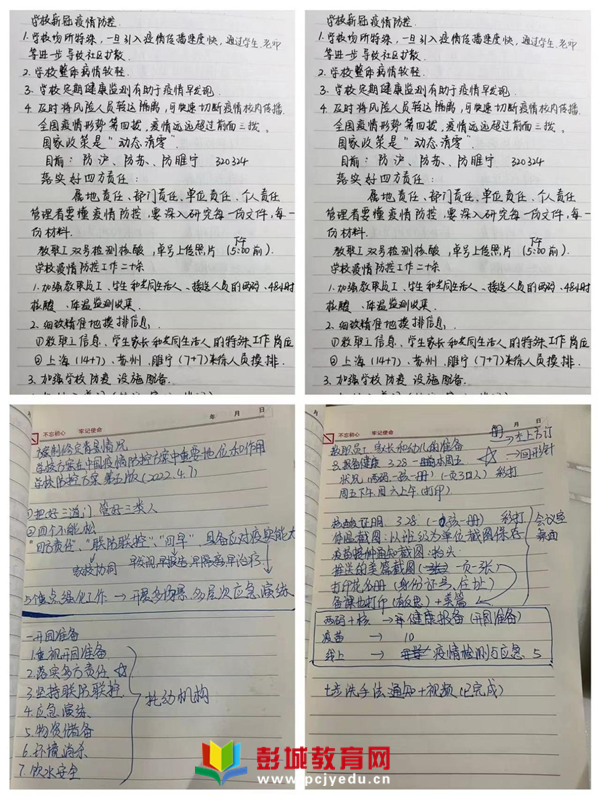 学校新冠疫情防控
1.学校场所特殊,一旦引入疫情传播速度快,通过学生、老师
等进一步导致社区扩散.
2.学校整体病情较轻.
3.学校定期健康监测有助于疫情早发现.
4.及时将风险人员转运隔离,可快速切断疫情校内传播.
全国疫情形势:第四拨,疫情远远超过前面三拨。
国家政策是"动态清零".
目前:防沪、防苏、防睢宁 320324
落实好四方责任:
属地责任、部门责任、单位责任、个人责任
管理者要懂疫情防控,要深入研究每一份文件,每一
份材料.
教职工双号检测核酸,单号上传照片(下午5:00前).
学校疫情防控工作二十条
1.加强教职员工、学生和共同生活人、接送人员的两码、48小时
核酸、体温监测收集.
2.细致精准地摸排信息.
①教职工信息、学生家长和共同生活人的特殊工作岗位
②上海(14+7)、苏州、睢宁(7+7)来徐人员摸排.
3.加强学校防疫设施配备.
学校新冠疫情防控
1.学校场所特殊,一旦引入疫情传播速度快,通过学生、老师
等进一步导致社区扩散.
2.学校整体病情较轻.
3.学校定期健康监测有助于疫情早发现.
4.及时将风险人员转运隔离,可快速切断疫情校内传播.
全国疫情形势:第四拨,疫情远远超过前面三拨。
国家政策是"动态清零".
目前:防沪、防苏、防睢宁 320324
落实好四方责任:
属地责任、部门责任、单位责任、个人责任
管理者要懂疫情防控,要深入研究每一份文件,每一
份材料.
教职工双号检测核酸,单号上传照片(下午5:00前).
学校疫情防控工作二十条
1.加强教职员工、学生和共同生活人、接送人员的两码、48小时
核酸、体温监测收集.
2.细致精准地摸排信息.
①教职工信息、学生家长和共同生活人的特殊工作岗位
②上海(14+7)、苏州、睢宁(7+7)来徐人员摸排.
3.加强学校防疫设施配备.
不忘初心 牢记使命
年 月 日
学校方案在中国疫情防控方案中重要地位和作用
学校防控方案第五版(2022.4.7)
①把好三道门 管好三类人
②四个不能松
"四方责任、"联防联控"、"四早" 具备应对疫情能力
家校协同 早发现早报告早隔离早治疗
5个重点强化工作 → 开展多场景、多层次应急演练
一.开园准备
1.重视开园准备
2.落实多方责任 ☆
3.坚持联防联控
4.应急演练
5.物资储备
6.环境消杀
7.饮水安全
托幼机构
不忘初心 牢记使命
年 月 日
教职员工、家长和幼儿的准备
→回形针
周五下午、周六上午(打印)
3.28
彩打
会议室
疫苗接种通知截图:抬头
打印花名册(身份证号、住址)
两码+核 → 健康报备(开园准备)
疫苗 → 10
线上 → 疫情检测与应急 5
七步洗手法通知+视频(已完成)
彭城教育网
www.pcjyedu.cn